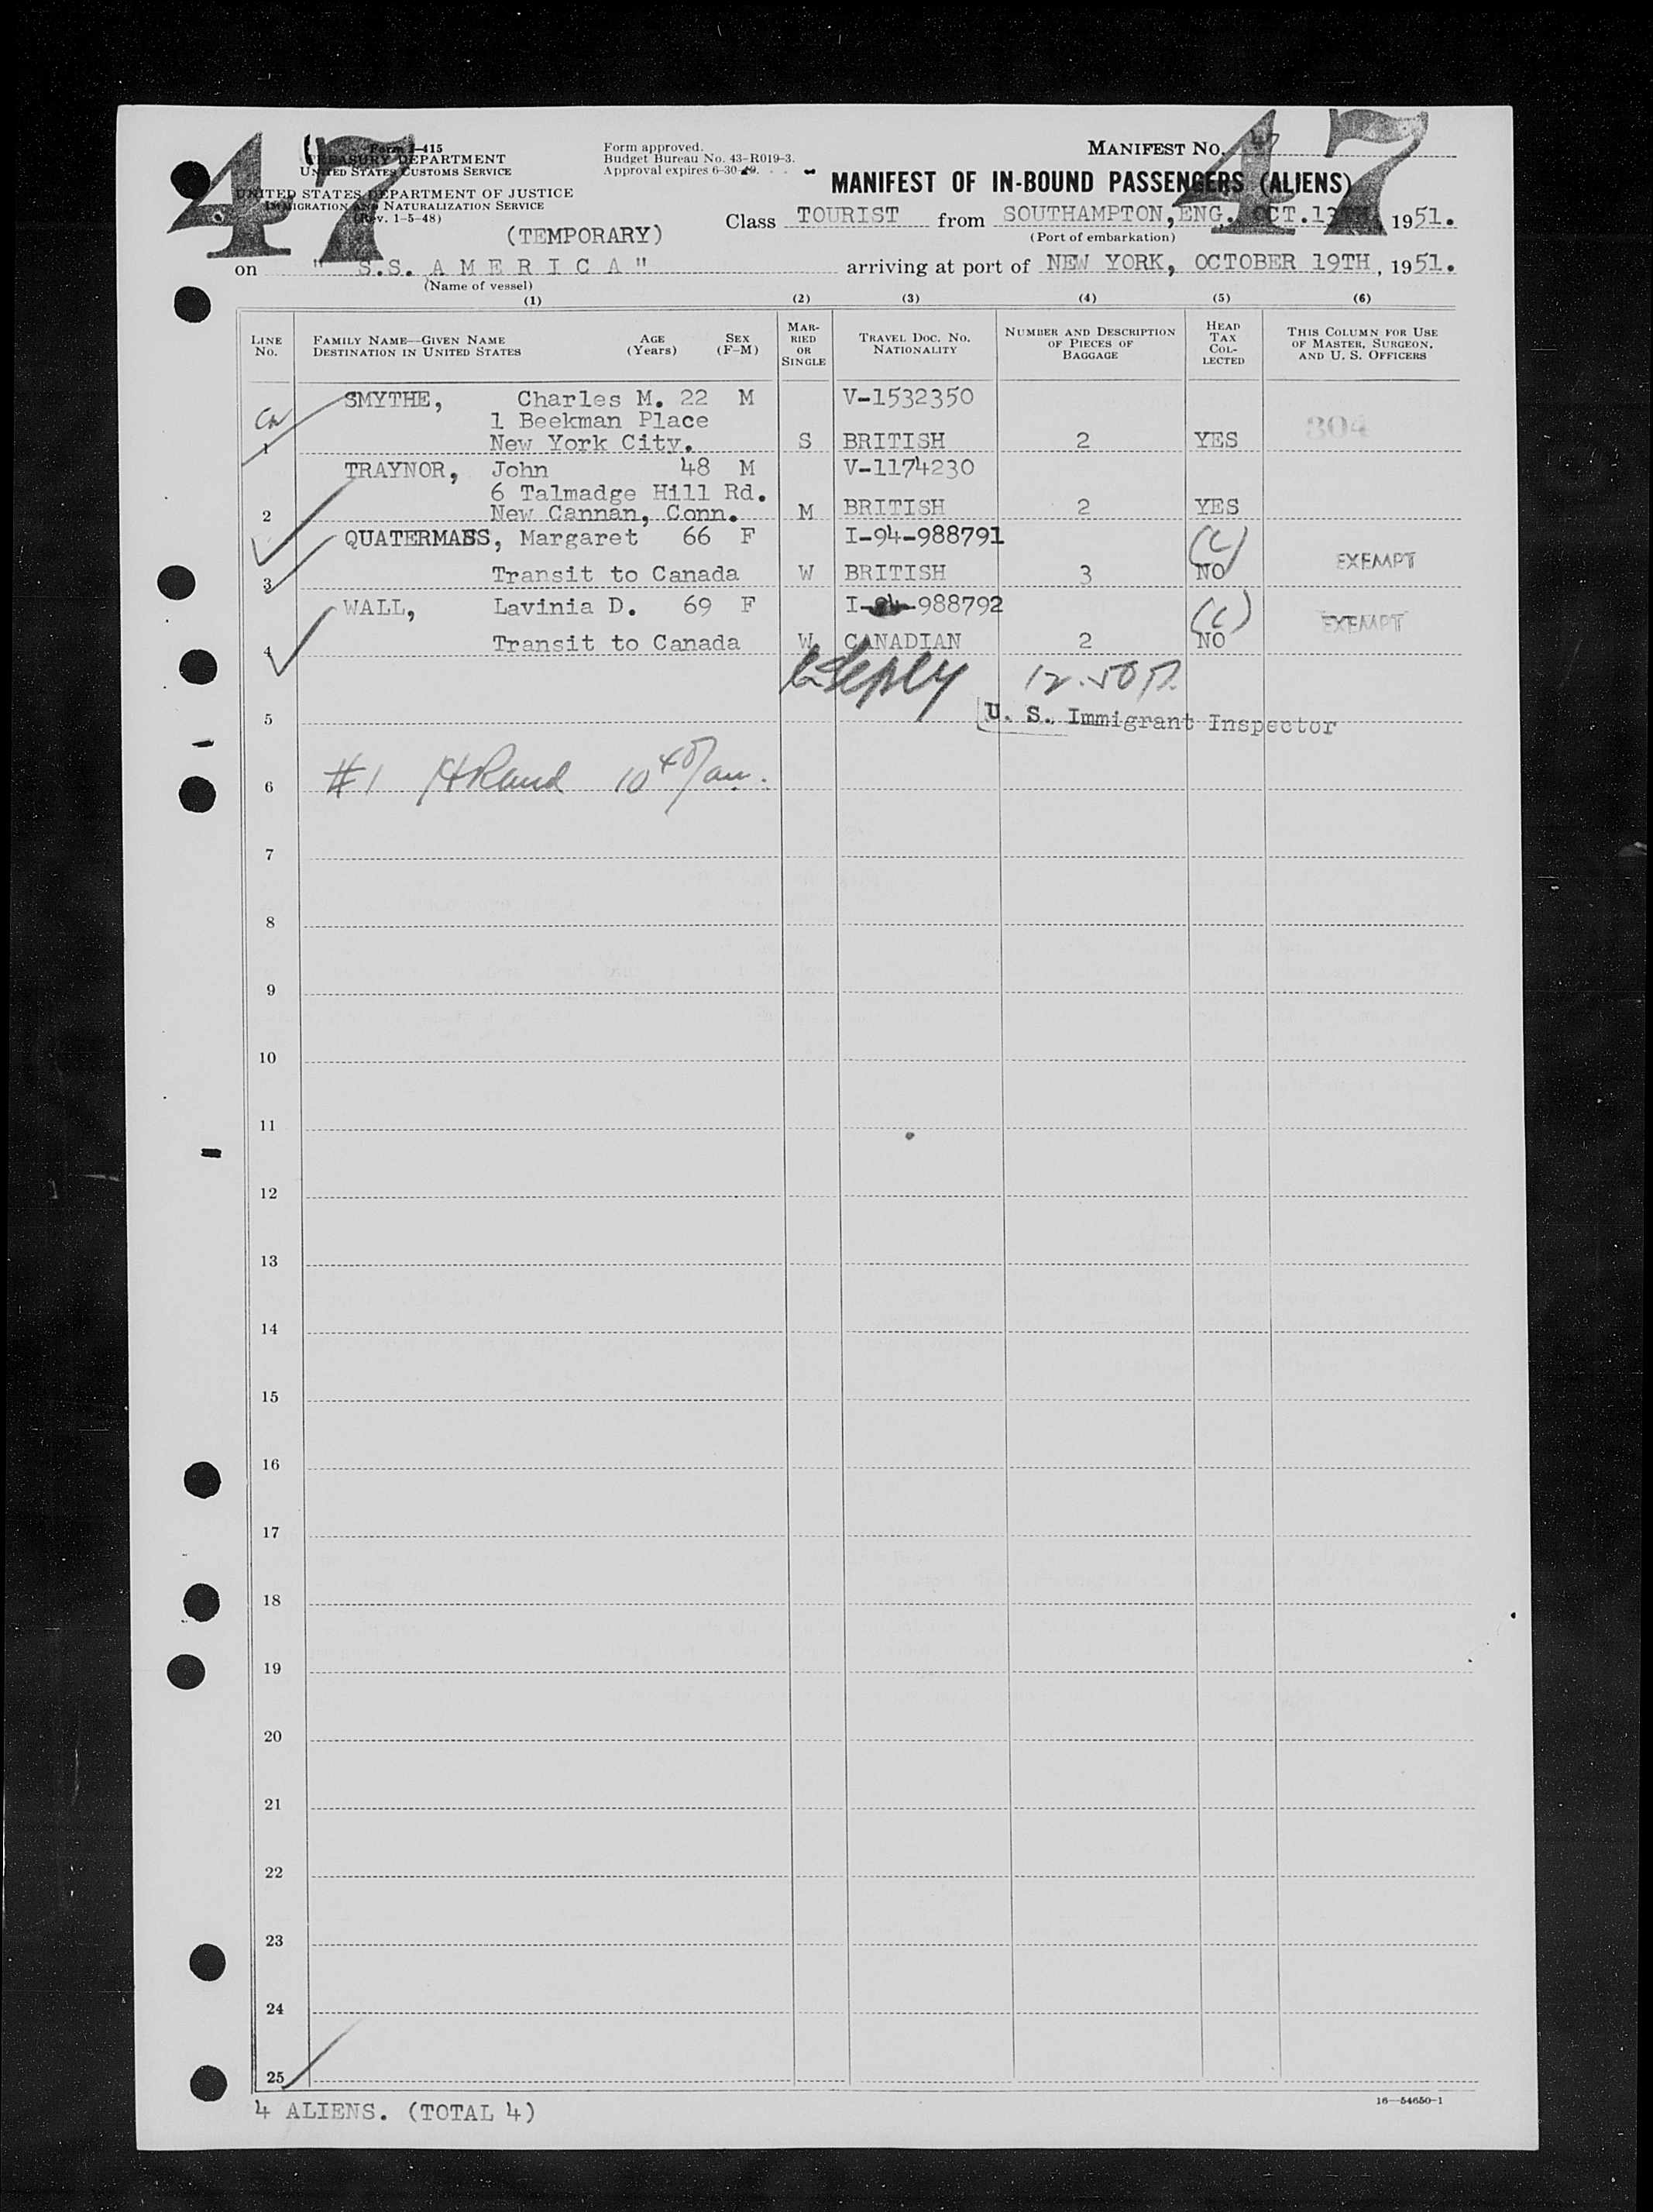 47
47
Form I-415
TREASURY DEPARTMENT
UNITED STATES CUSTOMS SERVICE
UNITED STATES DEPARTMENT OF JUSTICE
IMMIGRATION AND NATURALIZATION SERVICE
(Rev. 1-5-48)
Form approved.
Budget Bureau No. 43-R019-3.
Approval expires 6-30-49.
MANIFEST NO.
MANIFEST OF IN-BOUND PASSENGERS (ALIENS)
(TEMPORARY)
Class TOURIST from SOUTHAMPTON, ENG. OCT. 13TH 1951.
(Port of embarkation)
on " S.S. A M E R I C A " arriving at port of NEW YORK, OCTOBER 19TH, 1951.
(Name of vessel)
(1) (2) (3) (4) (5) (6)
LINE NO. FAMILY NAME—GIVEN NAME DESTINATION IN UNITED STATES AGE (Years) SEX (F-M) MARRIED OR SINGLE TRAVEL DOC. NO. NATIONALITY NUMBER AND DESCRIPTION OF PIECES OF BAGGAGE HEAD TAX COLLECTED THIS COLUMN FOR USE OF MASTER, SURGEON, AND U. S. OFFICERS
SMYTHE, Charles M. 22 M V-1532350
1 Beekman Place 304
1 New York City. S BRITISH 2 YES
TRAYNOR, John 48 M V-1174230
6 Talmadge Hill Rd.
2 New Cannan, Conn. M BRITISH 2 YES
QUATERMASS, Margaret 66 F I-94-988791 (C)
3 Transit to Canada W BRITISH 3 NO EXEMPT
WALL, Lavinia D. 69 F I-94-988792 (C)
4 Transit to Canada W CANADIAN 2 NO EXEMPT
12.50 P.
5 U. S. Immigrant Inspector
6 #1 HRand 10 40/am.
7
8
9
10
11
12
13
14
15
16
17
18
19
20
21
22
23
24
25
4 ALIENS. (TOTAL 4)
16—54650-1